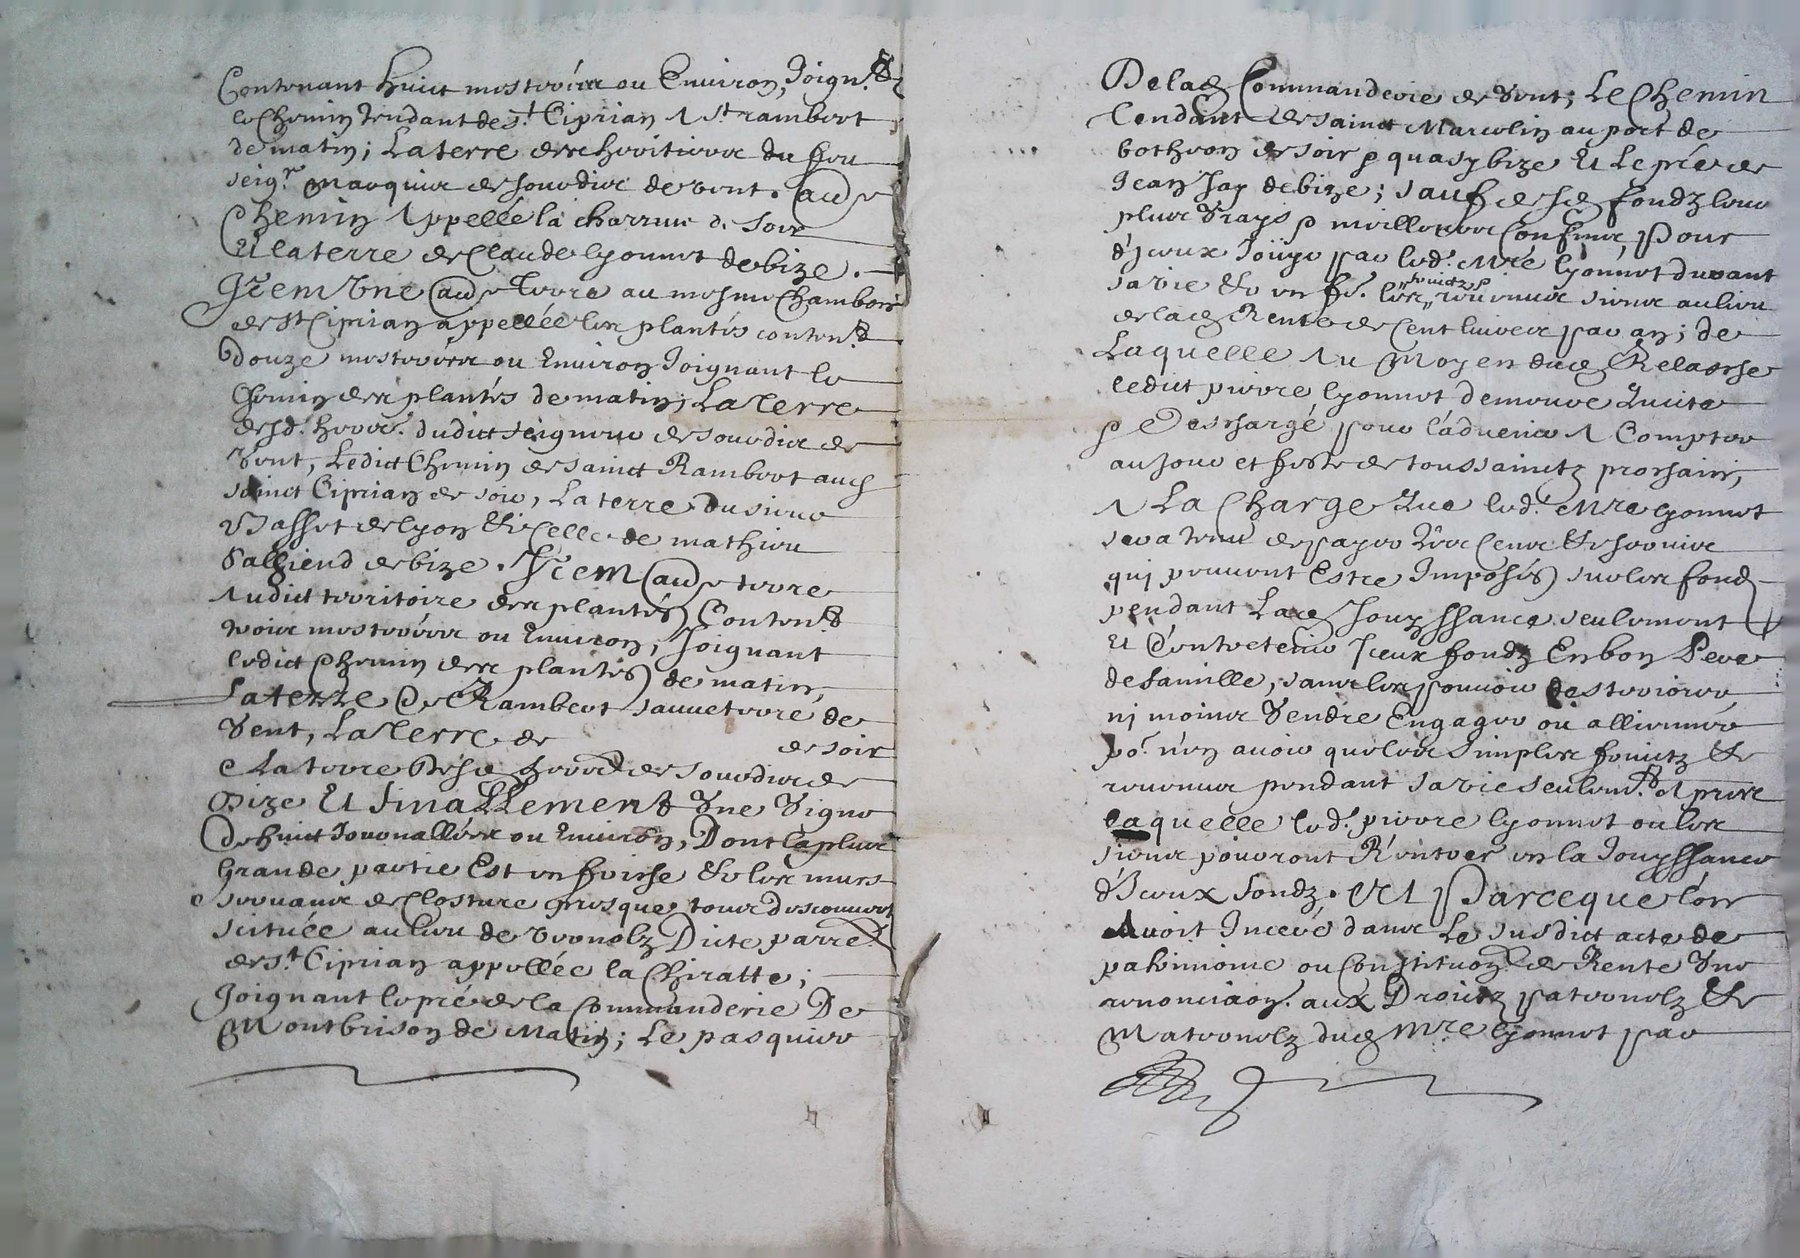 Contenant huict mestérées ou Environ, Joign.t
le Chemin tendant de s.t Ciprian A s.t rambert
de matin; La terre des heritiers du feu
seig.r marquis de sourdis de vent. 
Chemin Appellé la charriere de soir
Et la terre de Claude lyonnet de bize.
Item Une terre au mesme Chambon
de S.t Ciprian appellée les plantés conten.t
douze mestérées ou Environ Joignant le
Chemin des plantés de matin, La Terre
desd. heoirs. dudict seigneur de sourdis de
Vent, Ledict Chemin de sainct Rambert aud
sainct Ciprian de soir, La terre du sieur
Basset de lyon & icelle de mathieu
de bize. Item terre
Audict territoire des plantés Conten.t
trois mestérées ou Environ, Joignant
ledict Chemin des plantés de matin,
La terre De Rambert sauveterre de
Vent, La Terre de de soir
& La terre Desd. de sourdis de
Bize Et finallement Une Vigne
De huict Journallées ou Environ, Dont la plus
grande partie Est en frische & les murs
servans de Closture presque tous descouverts
scituée au lieu de Dicte parre
de s.t Ciprian appellée la Chiratte;
Joignant le pré de la Commanderie De
Montbrison de Matin; Le pasquier
De lad. Commanderie de Vent; Le Chemin
tendant de sainct Marcelin au port de
botheon de soir & quasy bize Et Le pré de
Jean Jay de bize; sauf desd. fondz leurs
plus Vrays & meilleurs Confins, Pour
d'Iceux Joüyr par led. M.re lyonnet durant
sa vie & en fe. les fruictz & revenus siens au lieu
de lad. Rente de Cent livres par an; de
Laquelle Au Moyen dud. Relasche
ledict pierre lyonnet demeure Quitte
& Deschargé pour l'advenir A Compter
au Jour et feste de toussainctz prochain,
A La Charge Que led. M.re lyonnet
sera tenu de payer les Cens & services
qui peuvent Estre Imposés sur les fondz
pendant Lad. Jouyssance seulement
Et d'entretenir Iceux fondz En bon Pere
de famille, sans les pouvoir desteriorer
ni moins Vendre Engager ou alliener
po.r n'en avoir que les simples fruictz &
revenus pendant sa vie seulem.t A pres
laquelle led. pierre lyonnet ou les
siens pourront R'entrer en la Jouyssance
d'Iceux fondz. Et Parceque l'on
Avoit Inceré dans Le susdict acte de
patrimoine ou Constitution de Rente Une
renonciaon. aux Droictz paternelz &
Maternelz dud. M.re lyonnet par